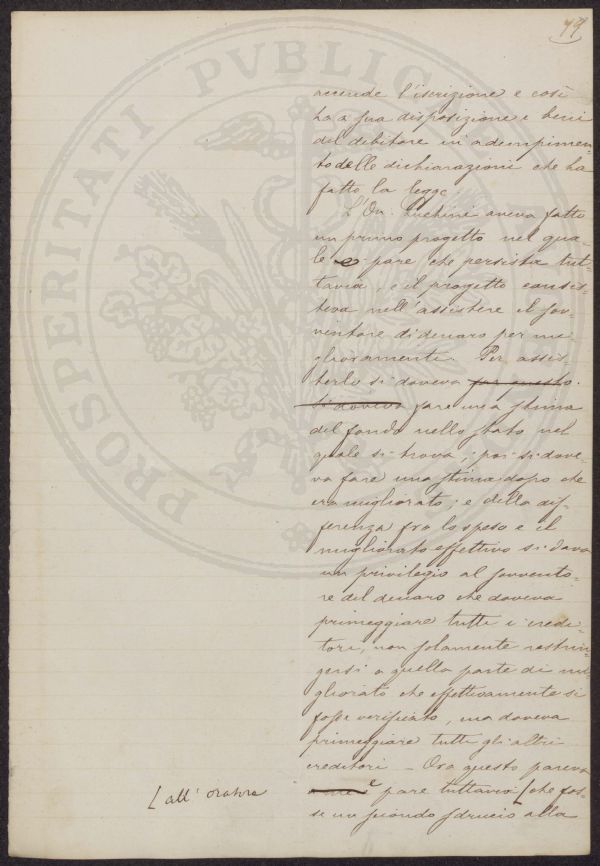 79
accende l'iscrizione e così
ha a sua disposizione i beni
del debitore in adempimen-
to delle dichiarazioni che ha
fatto la legge.
L'On. Luchini aveva fatto
un primo progetto nel qua-
le pare che persista tut-
tavia, e il progetto consis-
teva nell'assistere il sov-
ventore di denaro per mi
glioramenti. Per assis-
terlo si doveva far questo.
si doveva fare una stima
del fondo nello stato nel
quale si trova, poi si dove-
va fare una stima dopo che
era migliorato; e della dif-
ferenza fra lo speso e il
migliorato effettivo si dava
un privilegio al sovvento-
re del denaro che doveva
primeggiare tutti i credi-
tori, non solamente restrin-
gersi a quella parte di mi
gliorato che effettivamente si
fosse verificato, ma doveva
primeggiare tutti gli altri
creditori – Ora questo pareva
e pare tuttavia [che fos-
[all' oratore
se un secondo sdrucio alla
PROSPERITATI PVBLICAE